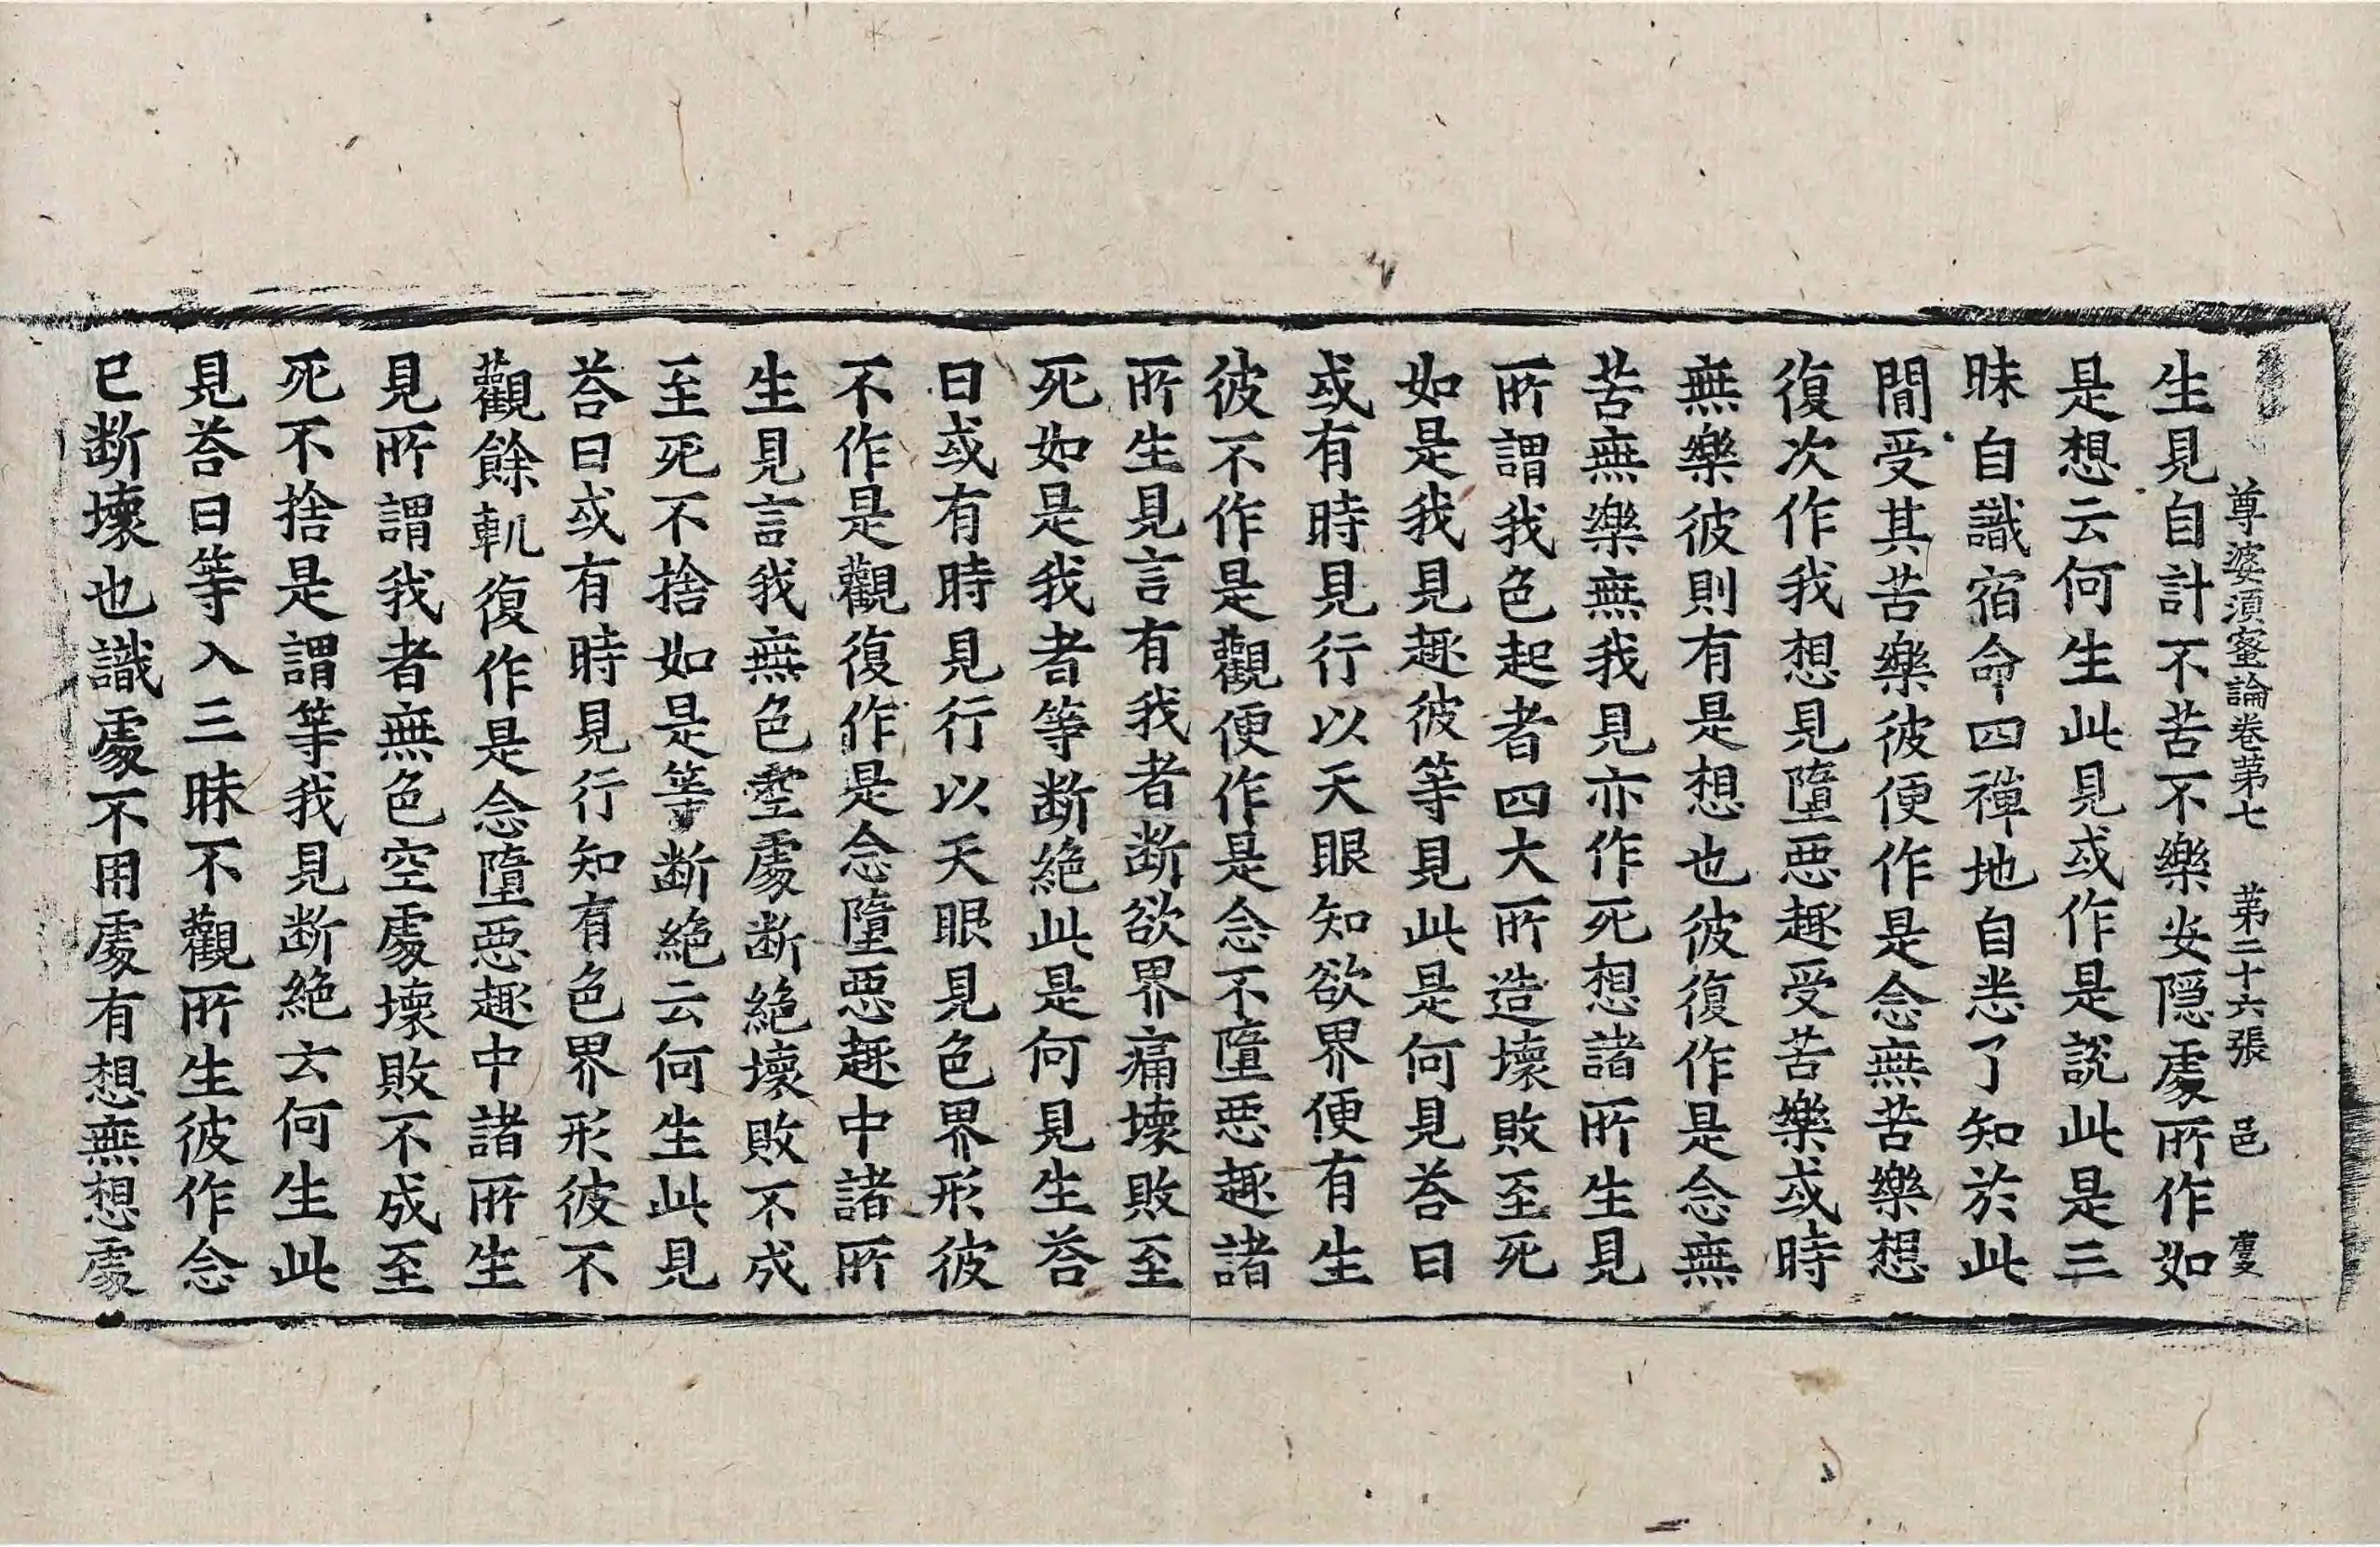 尊婆須蜜論卷苐七 苐二十六張 邑
生見自計不苦不樂安隱處所作如
是想云何生此見或作是說此是三
昧自識宿命四禪地自悉了知於此
閒受其苦樂彼便作是念無苦樂想
復次作我想見墮惡趣受苦樂或時
無樂彼則有是想也彼復作是念無
苦無樂無我見亦作死想諸所生見
所謂我色起者四大所造壞敗至死
如是我見趣彼等見此是何見荅曰
或有時見行以天眼知欲界便有生
彼不作是觀便作是念不墮惡趣諸
所生見言有我者斷欲界痛壞敗至
死如是我者等斷絕此是何見生荅
曰或有時見行以天眼見色界形彼
不作是觀復作是念墮惡趣中諸所
生見言我無色空處斷絕壞敗不成
至死不捨如是等斷絕云何生此見
荅曰或有時見行知有色界形彼不
觀餘軓復作是念墮惡趣中諸所生
見所謂我者無色空處壞敗不成至
死不捨是謂等我見斷絕云何生此
見荅曰等入三昧不觀所生彼作念
已斷壞也識處不用處有想無想處